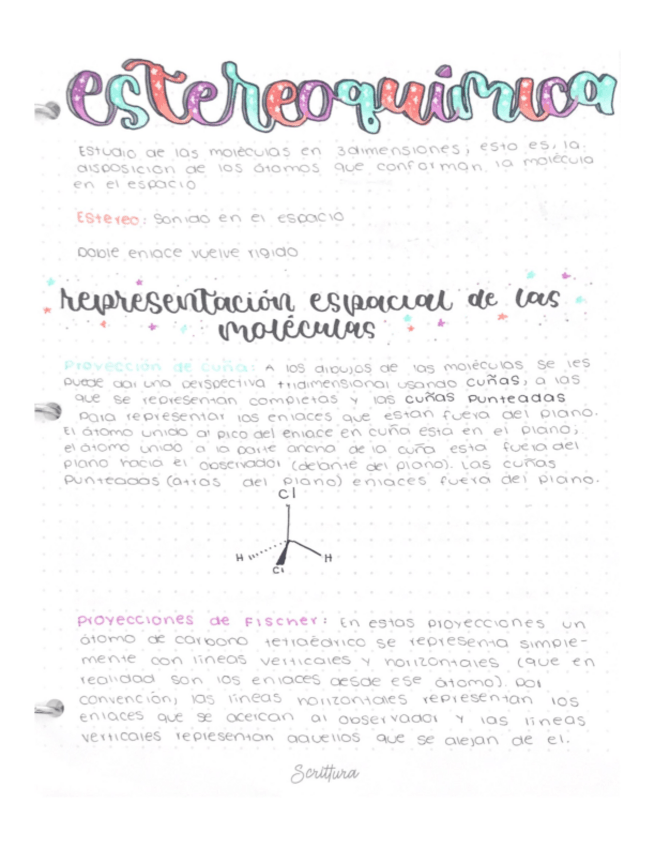 estereoquimica
Estudio de las moléculas en 3dimensiones, esto es, la
disposición de los átomos que conforman la molécula
en el espacio
Estereo: Sonido en el espacio
Doble enlace vuelve rigido
representación espacial de las
moléculas
Proyección de cuña: A los dibujos de las moléculas se les
puede dar una perspectiva tridimensional usando cuñas, a las
que se representan completas y las cuñas punteadas
para representar los enlaces que están fuera del plano.
El átomo unido al pico del enlace en cuña está en el plano;
el átomo unido a la parte ancha de la cuña esta fuera del
plano hacia el observador (delante del plano). Las cuñas
punteadas (atras del plano) enlaces fuera del plano.
Cl
H H
Cl
Proyecciones de Fischer: En estas proyecciones un
átomo de carbono tetraédrico se representa simple-
mente con lineas verticales y horizontales (que en
realidad son los enlaces desde ese átomo). Por
convención, las lineas horizontales representan los
enlaces que se acercan al observador y las lineas
verticales representan aquellos que se alejan de el.
Scrittura